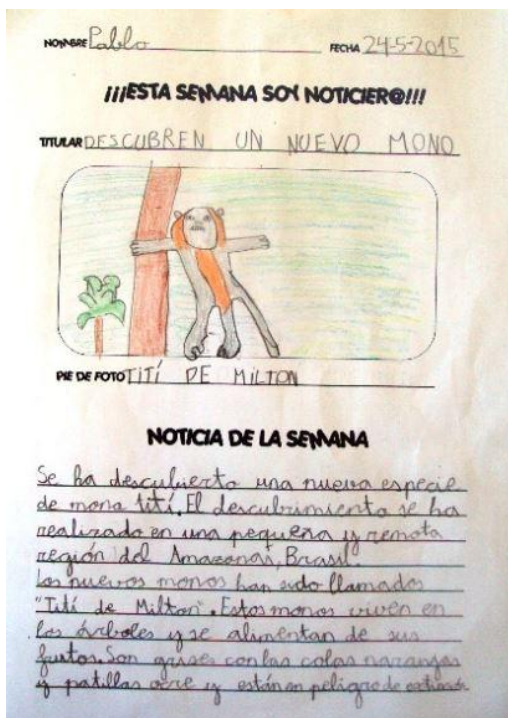 NOMBRE Pablo FECHA 24-5-2015
¡¡¡ESTA SEMANA SOY NOTICIER@!!!
TITULAR DESCUBREN UN NUEVO MONO
PIE DE FOTO TITÍ DE MILTON
NOTICIA DE LA SEMANA
Se ha descubierto una nueva especie
de mono tití. El descubrimiento se ha
realizado en una pequeña y remota
región del Amazonas, Brasil.
Los nuevos monos han sido llamados
"Tití de Milton". Estos monos viven en
los árboles y se alimentan de sus
frutos. Son grises con las colas naranjas
y patillas ocre y están en peligro de extinción